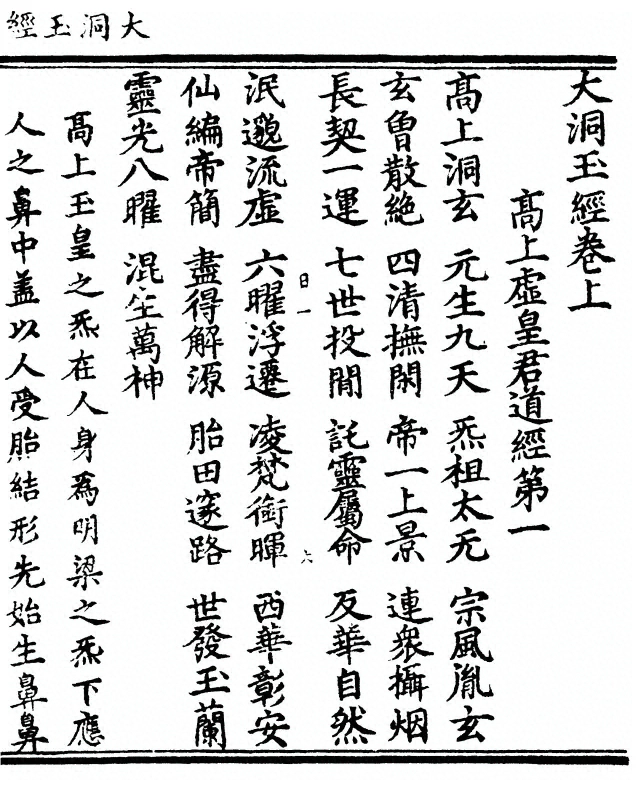 大洞玉經
大洞玉經卷上
高上虛皇君道經第一
高上洞玄 元生九天 炁祖太无 宗風胤玄
玄曾散絶 四清撫閑 帝一上景 連衆攝烟
長契一運 七世投閒 託靈屬命 反華自然
日一 六
泯邈流虛 六曜浮遷 凌梵銜暉 西華彰安
仙編帝簡 盡得解源 胎田邃路 世發玉蘭
靈光八曜 混生萬神
高上玉皇之炁在人身爲明梁之炁下應
人之鼻中蓋以人受胎結形先始生鼻鼻